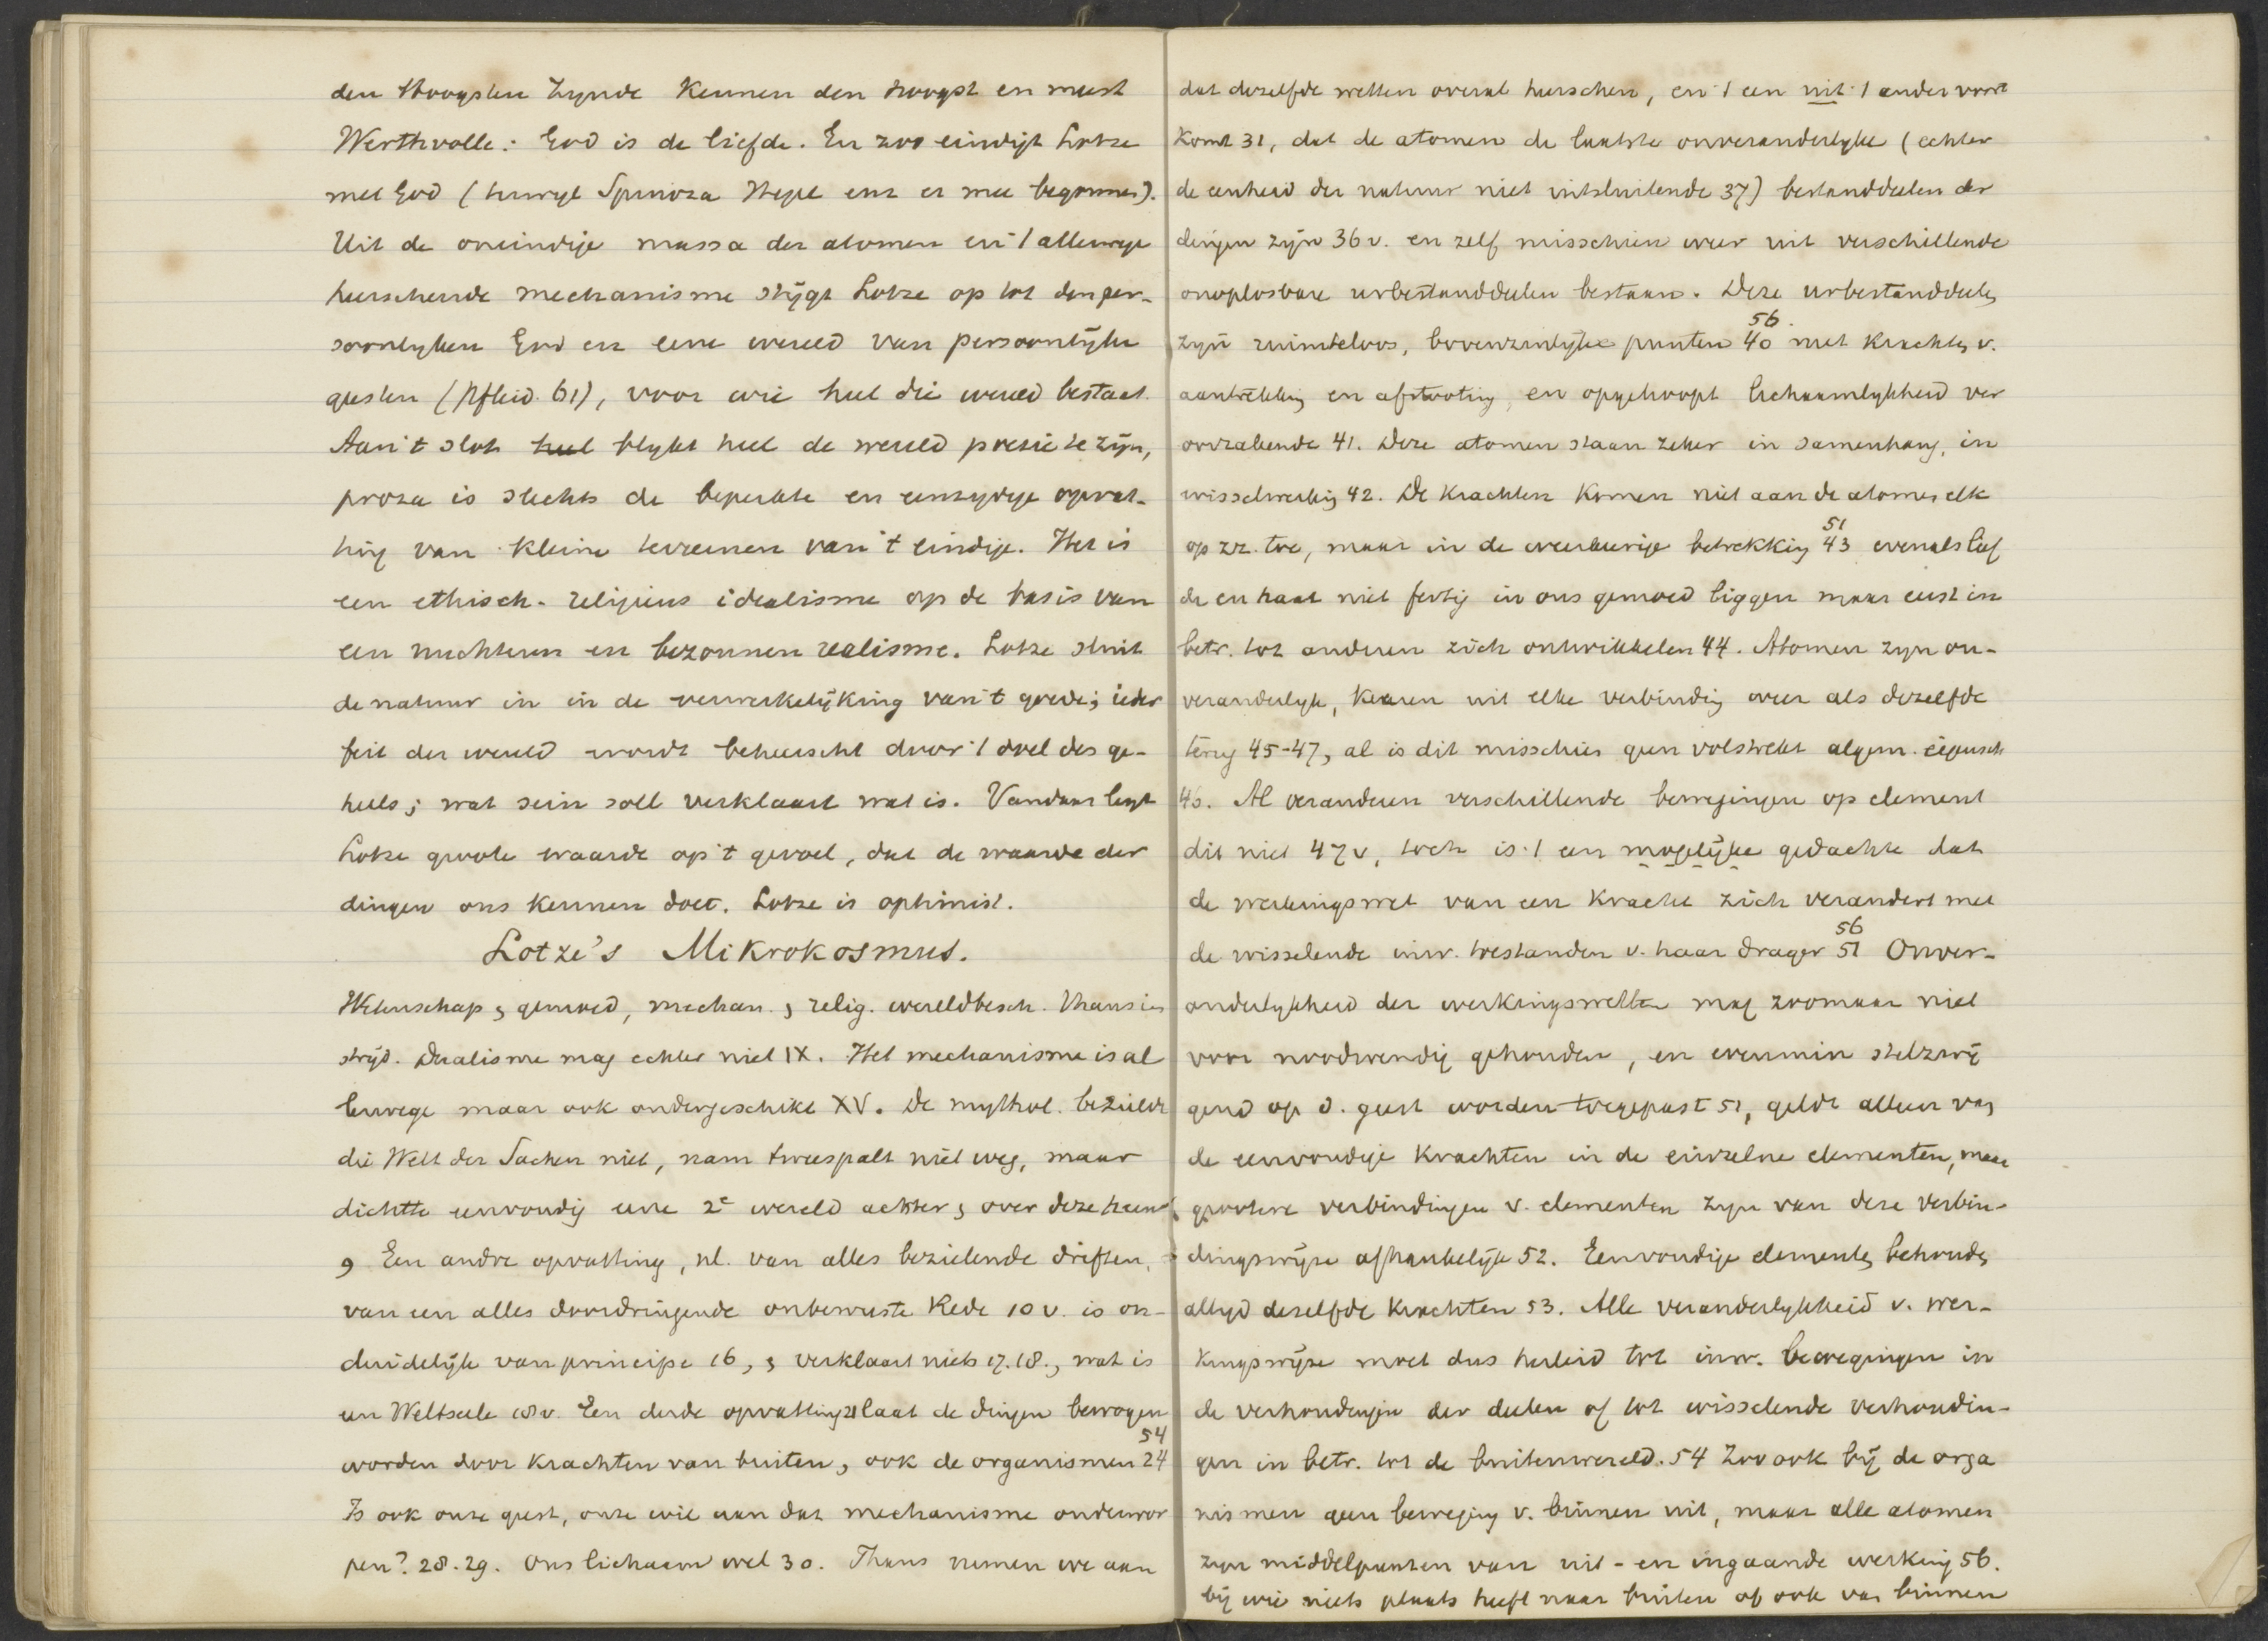 den Hoogsten Zynde kennen den hoogst en meest
Werthvolle: God is de liefde. En zoo eindigt Lotze
met God (terwyl Spinoza Hegel enz er mee begonnen).
Uit de oneindige massa der atomen en 't allerwege
heerschende mechanisme stijgt Lotze op tot den per-
soonlyken God en eene wereld van persoonlijke
geesten (Pfleid. 61), voor wie heel die wereld bestaat.
Aan 't slot heel blykt heel de wereld poesie te zijn,
proza is slechts de beperkte en eenzydige opvat-
ting van kleine terreinen van 't eindige. Het is
een ethisch-religieus idealisme op de basis van
een nuchteren en bezonnen realisme. Lotze sluit
de natuur in in de verwerkelijking van 't goede; ieder
feit der wereld wordt beheerscht door 't doel des ge-
heels; wat sein soll verklaart wat is. Vandaar legt
Lotze groote waarde op 't gevoel, dat de waarde der
dingen ons kennen doet. Lotze is optimist.
Lotze's Mikrokosmus.
Wetenschap & gemoed, mechan. & relig. wereldbesch. thans in
strijd. Dualisme mag echter niet IX. Het mechanisme is al
lerwege maar ook ondergeschikt XV. De mythol. bezielde
die Welt der Sachen niet, nam tweespalt niet weg, maar
dichtte eenvoudig eene 2e wereld achter & over deze heen
9 Een andre opvatting, nl. van alles bezielende driften,
van een alles doordringende onbewuste Rede 10 v. is on-
duidelijk van principe 16, & verklaart niets 17.18., wat is
een Weltseele 18 v. Een derde opvatting 21 laat de dingen bewogen
worden door krachten van buiten, ook de organismen 24 54
Is ook onze geest, onze wil aan dat mechanisme onderwor
pen? 28.29. Ons lichaam wel 30. Thans nemen we aan
dat dezelfde wetten overal heerschen, en 't een uit 't ander voort
komt 31, dat de atomen de laatste onveranderlyke (echter
de eenheid der natuur niet uitsluitende 37) bestanddeelen der
dingen zijn 36 v. en zelf misschien weer uit verschillende
onoplosbare urbestanddeelen bestaan. Deze urbestanddeelen
zijn ruimteloos, bovenzinlijke punten 40 56. met krachten v.
aantrekking en afstooting, en opgehoopt lichaamlykheid ver
oorzakende 41. Deze atomen staan zeker in samenhang, in
wisselwerking 42. De krachten komen niet aan de atomen elk
op zz. toe, maar in de wederkeerige betrekking 43 51 evenals lief
de en haat niet fertig in ons gemoed liggen maar eerst in
betr. tot anderen zich ontwikkelen 44. Atomen zyn on-
veranderlyk, keeren uit elke verbinding weer als dezelfde
terug 45-47, al is dit misschien geen volstrekt algem. eigensch
46. Al veranderen verschillende bewegingen op element
dit niet 47 v, toch is 't een mogelijke gedachte dat
de werkingswet van een kracht zich verandert met
de wisselende inw. toestanden v. haar drager 51 56 Onver-
anderlykheid der werkingswetten mag zoomaar niet
voor noodwendig gehouden, en evenmin stelzwij
gend op d. geest worden toegepast 51, geldt alleen van
de eenvoudige krachten in de einzelne elementen, maar
grootere verbindingen v. elementen zyn van deze verbin-
dingswijze afhankelijk 52. Eenvoudige elementen behouden
altyd dezelfde krachten 53. Alle veranderlykheid v. wer-
kingswijze moet dus herleid tot inw. bewegingen in
de verhoudingen der deelen of tot wisselende verhoudin-
gen in betr. tot de buitenwereld. 54 Zoo ook bij de orga
nismen geen beweging v. binnen uit, maar alle atomen
zyn middelpunten van uit- en ingaande werking 56.
bij wie niets plaats heeft naar buiten of ook van binnen